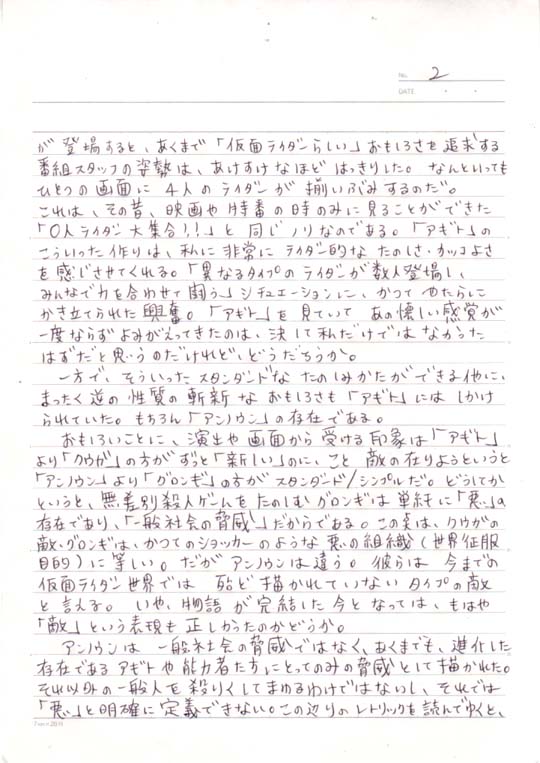 No. 2
DATE
が登場すると、あくまで「仮面ライダーらしい」おもしろさを追求する
番組スタッフの姿勢は、あけすけなほどはっきりした。なんといっても
ひとつの画面に4人のライダーが揃いぶみするのだ。
これは、その昔、映画や特番の時のみに見ることができた
「〇人ライダー大集合!!」と同じノリなのである。「アギト」の
こういった作りは、私に非常にライダー的なたのしさ・カッコよさ
を感じさせてくれる。「異なるタイプのライダーが数人登場し、
みんなで力を合わせて闘う」シチュエーションに、かつてやたらに
かき立てられた興奮。「アギト」を見ていてあの懐しい感覚が
一度ならずよみがえってきたのは、決して私だけではなかった
はずだと思うのだけれど、どうだろうか。
一方で、そういったスタンダードなたのしみかたができる他に、
まったく逆の性質の斬新なおもしろさも「アギト」にはしかけ
られていた。もちろん「アンノウン」の存在である。
おもしろいことに、演出や画面から受ける印象は「アギト」
より「クウガ」の方がずっと「新しい」のに、こと敵の在りようというと
「アンノウン」より「グロンギ」の方がスタンダード/シンプルだ。どうしてか
というと、無差別殺人ゲームをたのしむグロンギは単純に「悪」の
存在であり、「一般社会の脅威」だからである。この点は、クウガの
敵・グロンギは、かつてのショッカーのような悪の組織(世界征服
目的)に等しい。だがアンノウンは違う。彼らは今までの
仮面ライダー世界では殆ど描かれていないタイプの敵
と言える。いや、物語が完結した今となっては、もはや
「敵」という表現も正しかったのかどうか。
アンノウンは一般社会の脅威ではなく、あくまでも、進化した
存在であるアギトや能力者たちにとってのみの脅威として描かれた。
それ以外の一般人を殺りくしてまわるわけではないし、それでは
「悪」と明確に定義できない。この辺りのレトリックを読んでゆくと、